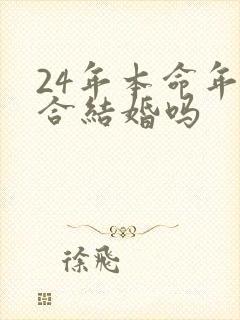 24年本命年
合結婚吗
徐飛